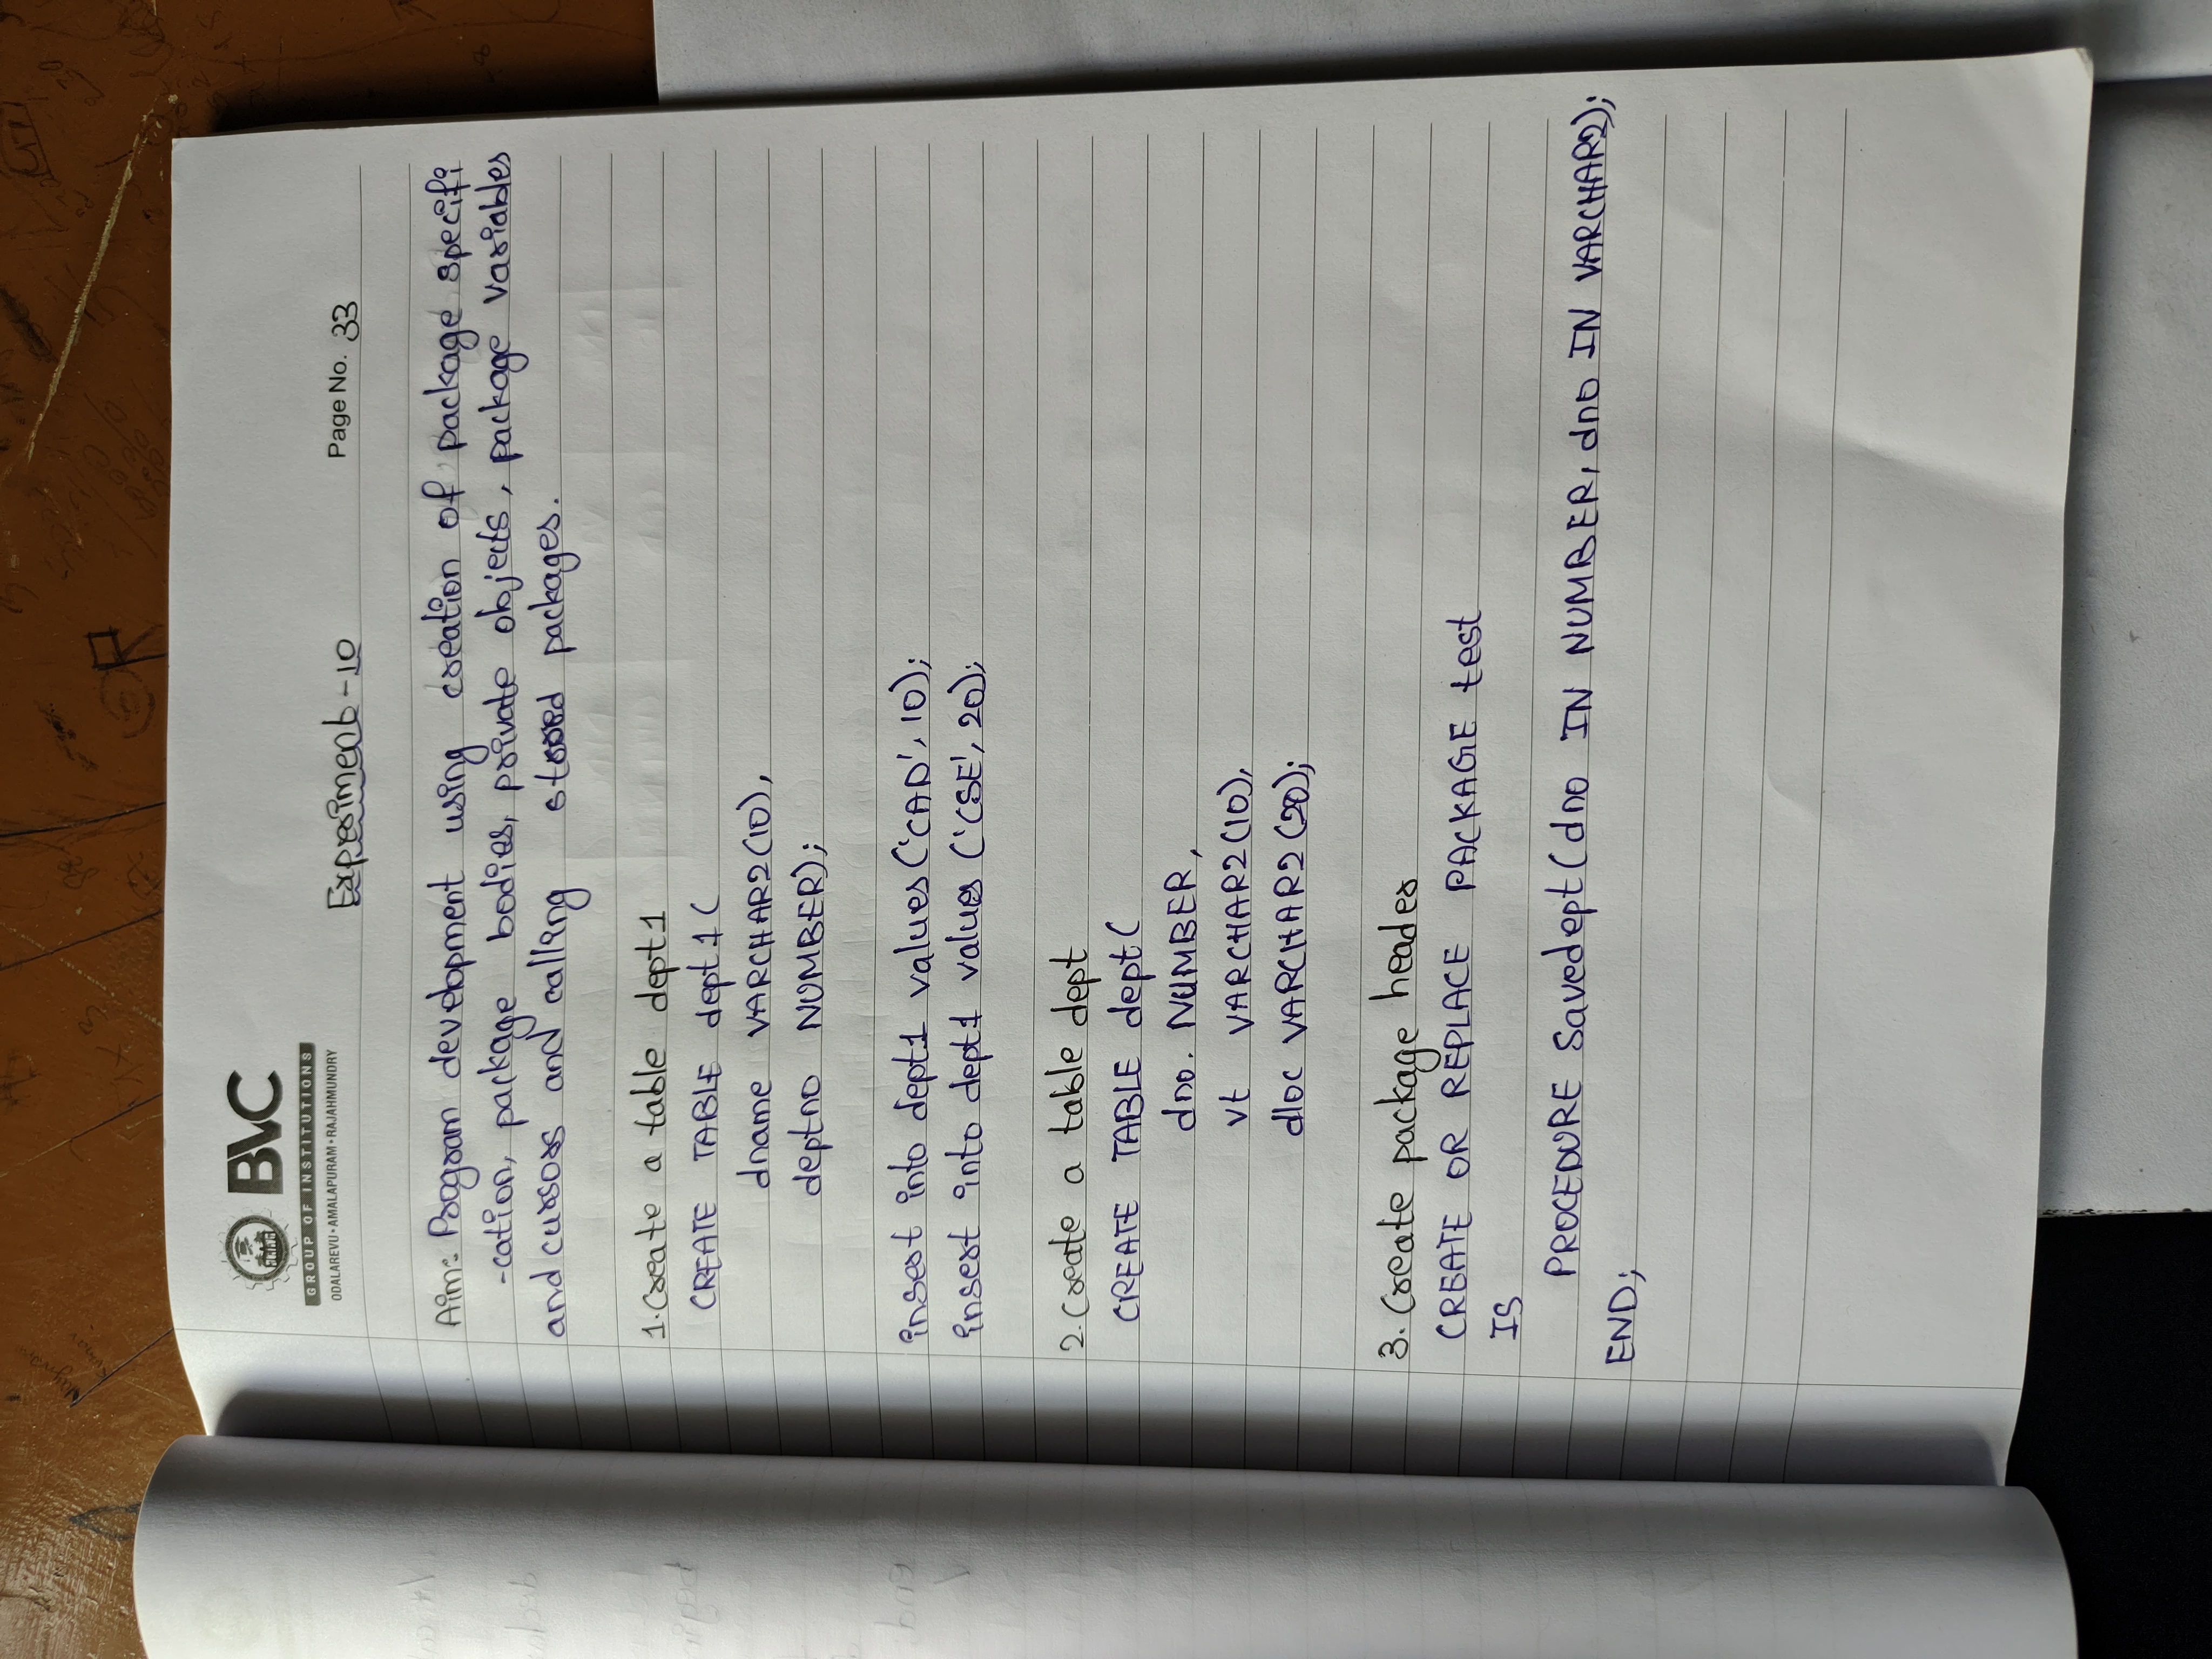 BVC
GROUP OF INSTITUTIONS
ODALAREVU • AMALAPURAM • RAJAHMUNDRY
Experiment-10
Page No. 33
Aim: Program development using creation of package specifi
-cation, package bodies, private objects, package variables
and cursors and calling stored packages.
1. Create a table dept1
CREATE TABLE dept1(
dname VARCHAR2(10),
deptno NUMBER);
insert into dept1 values('CAD', 10);
insert into dept1 values ('CSE', 20);
2. Create a table dept
CREATE TABLE dept(
dno. NUMBER,
vt VARCHAR2(10),
dloc VARCHAR2(20);
3. Create package header
CREATE OR REPLACE PACKAGE test
IS
PROCEDURE Savedept(dno IN NUMBER, dno IN VARCHAR2);
END;
R